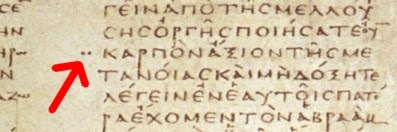 ΓΕΙΝΑΠΟΤΗϹΜΕΛΛΟΥ
ϹΗϹΟΡΓΗϹΠΟΙΗϹΑΤΕΟΥ̅
ΚΑΡΠΟΝΑΞΙΟΝΤΗϹΜΕ
ΤΑΝΟΙΑϹΚΑΙΜΗΔΟΞΗΤΕ
ΛΕΓΕΙΝΕΝΕΑΥΤΟΙϹΠΑΤΕ
ΡΑΕΧΟΜΕΝΤΟΝΑΒΡΑΑΜ